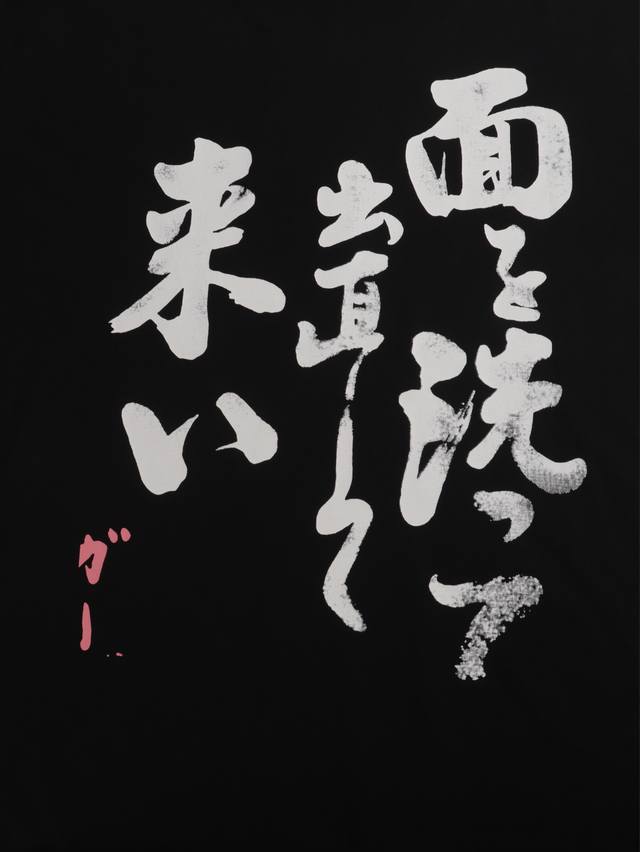 面を洗って
出直して
来い
がー